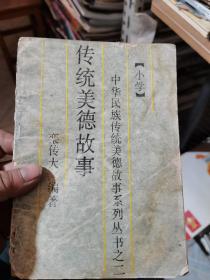 【小学】
中华民族传统美德故事系列丛书之二
传统美德故事
传大 编著